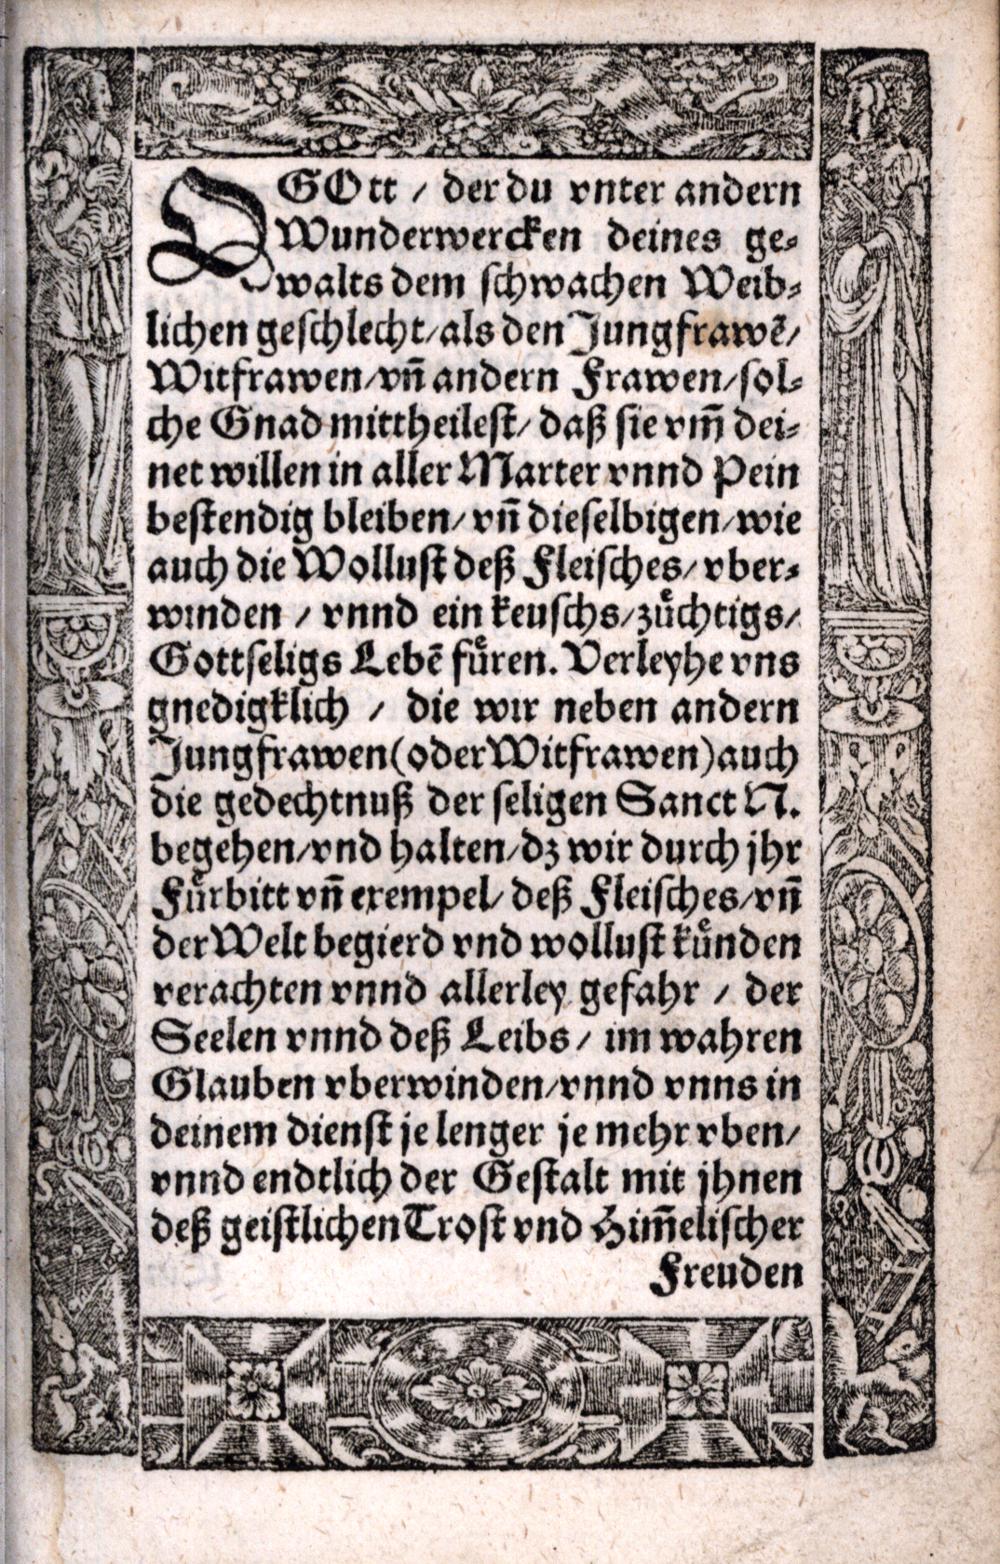 O GOtt / der du vnter andern
Wunderwercken deines ge⸗
walts dem schwachen Weib⸗
lichen geschlecht/als den Jungfrawē/
Witfrawen/vn̄ andern Frawen/sol⸗
che Gnad mittheilest/ daß sie vm̄ dei⸗
net willen in aller Marter vnnd Pein
bestendig bleiben/ vn̄ dieselbigen/wie
auch die Wollust deß Fleisches/ vber⸗
winden / vnnd ein keuschs/zuͤchtigs/
Gottseligs Lebē fuͤren. Verleyhe vns
gnedigklich / die wir neben andern
Jungfrawen(oder Witfrawen)auch
die gedechtnuß der seligen Sanct N.
begehen/vnd halten/dz wir durch jhr
Fuͤrbitt vn̄ exempel/ deß Fleisches/vn̄
der Welt begierd vnd wollust kuͤnden
verachten vnnd allerley gefahr / der
Seelen vnnd deß Leibs / im wahren
Glauben vberwinden/vnnd vnns in
deinem dienst je lenger je mehr vben/
vnnd endtlich der Gestalt mit jhnen
deß geistlichen Trost vnd Him̄elischer
Freuden